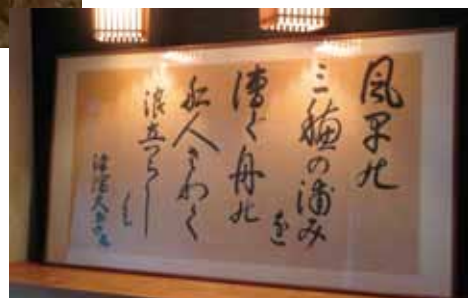 風早の
三穂の浦み
を
漕ぐ舟の
船人さわく
浪立つらし
も